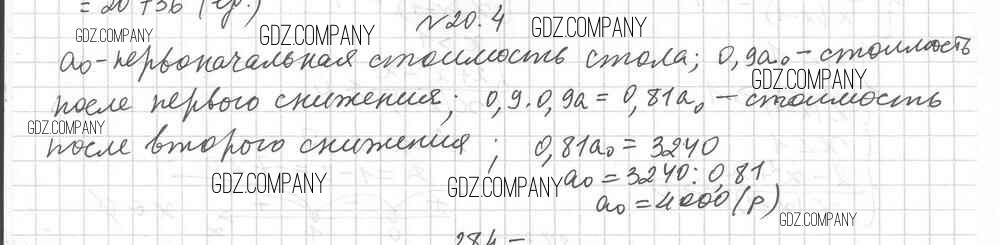 = 20736 (гр.)
№20.4
a₀ - первоначальная стоимость стола; 0,9a₀ - стоимость
после первого снижения; 0,9·0,9a = 0,81a₀ - стоимость
после второго снижения; 0,81a₀ = 3240
a₀ = 3240 : 0,81
a₀ = 4000 (р)
GDZ.COMPANY
GDZ.COMPANY
GDZ.COMPANY
GDZ.COMPANY
GDZ.COMPANY
GDZ.COMPANY
GDZ.COMPANY
GDZ.COMPANY